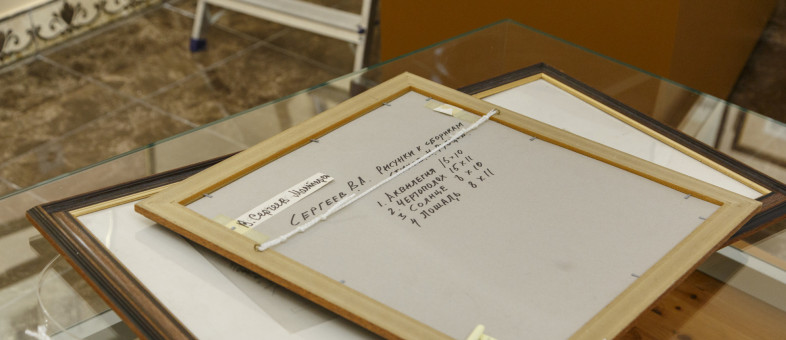 В. Сергеев
СЕРГЕЕВ В.А. РИСУНКИ К СБОРНИКАМ
1. АКВИЛЕГИЯ 15×10
2 ЧЕРТОПОЛОХ 15×11
3 СОЛНЦЕ 8×10
4 ЛОШАДЬ 8×11